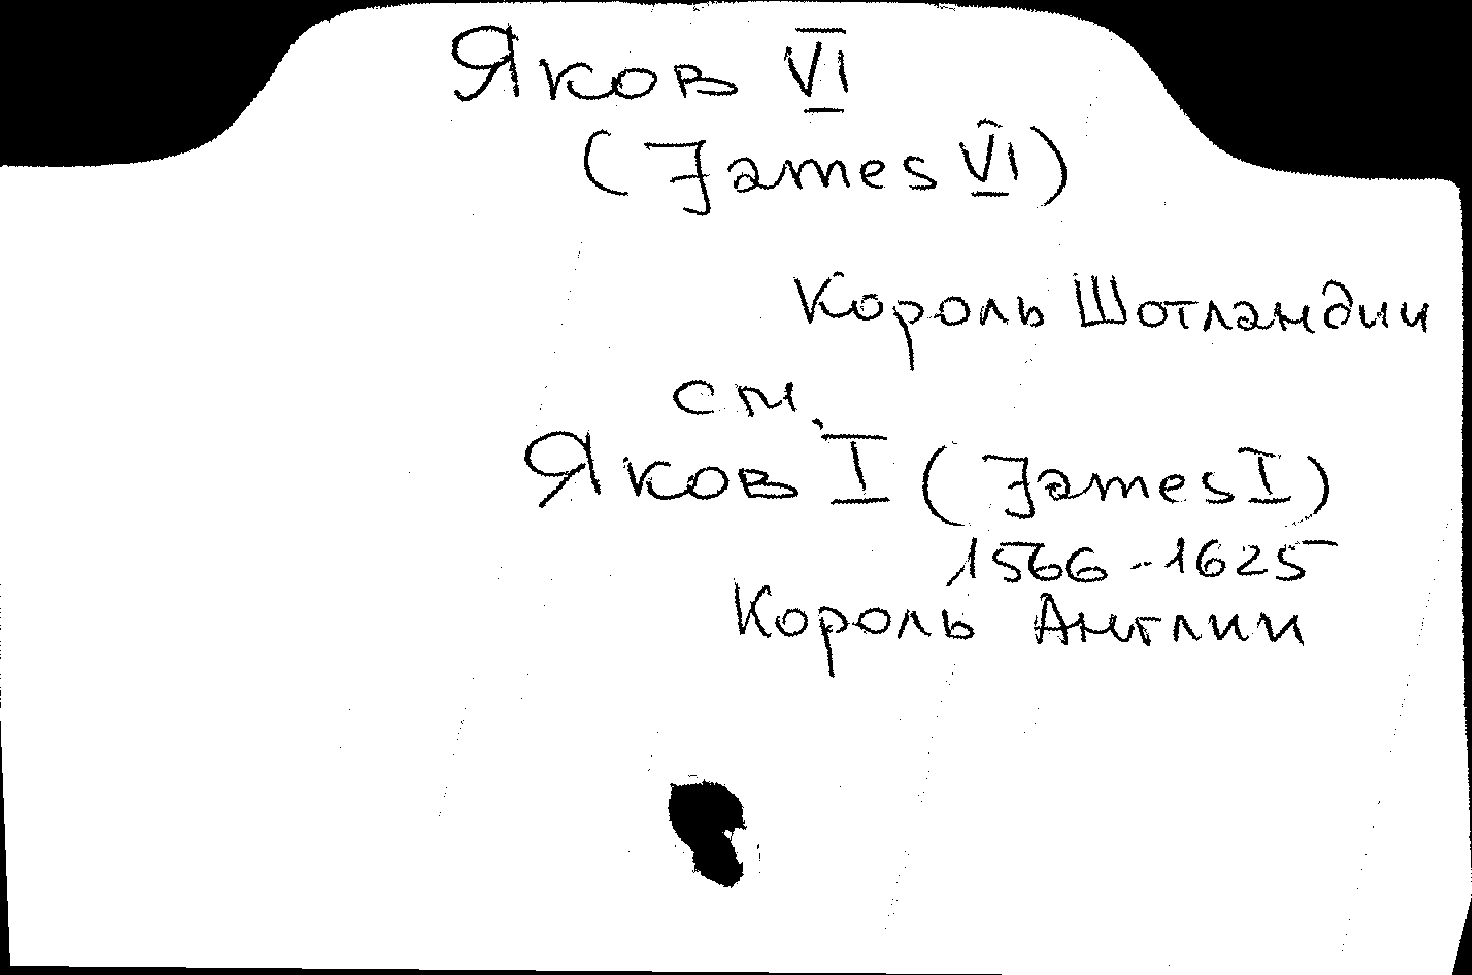 Яков VI
(James VI)
Король Шотландии
см.
Яков I (James I)
1566-1625
Король Англии